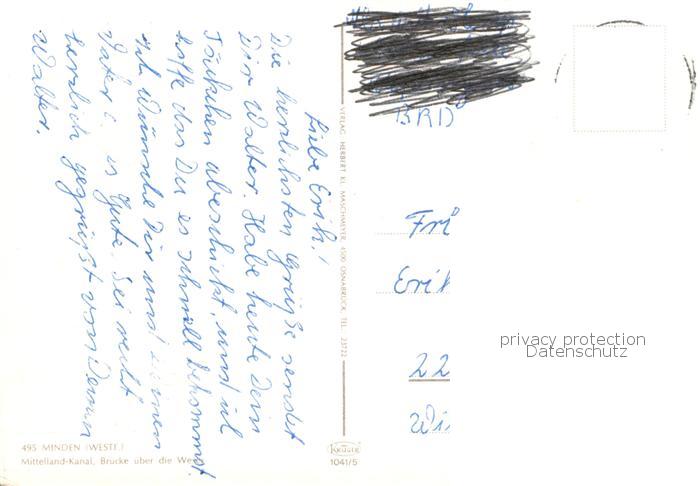 Liebe Erih!
Die herzlichsten Grüße sendet
Dir Walter. Habe heute Dein
abeschickt, und ich
hoffe das Du es schnell bekommst.
Ich wünsche Dir und
Gute. Sei recht
herzlich gegrüßt von Deinem
Walter.
495 MINDEN (WESTF.)
Mittelland-Kanal, Brücke über die We
VERLAG HERBERT KL. MASCHMEYER, 4500 OSNABRÜCK, TEL. 23722
KRÜGER
1041/5
BRD
Erik
22
Wi
privacy protection
Datenschutz